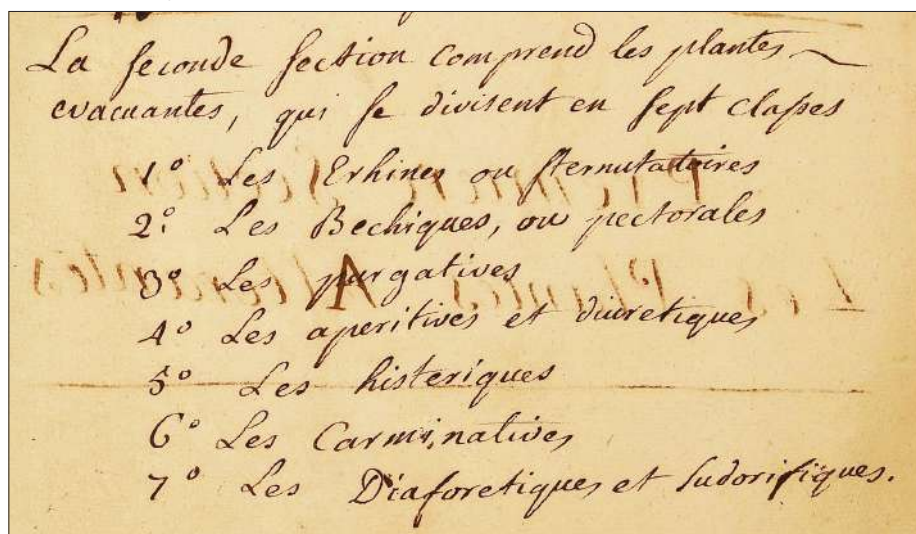 La seconde section comprend les plantes
evacuantes, qui se divisent en sept classes
1º Les Erhines ou sternutatoires
2º. Les Bechiques, ou pectorales
3º Les purgatives
4º Les aperitives et diuretiques
5º Les histeriques
6º Les Carminatives
7º Les Diaforetiques et sudorifiques.